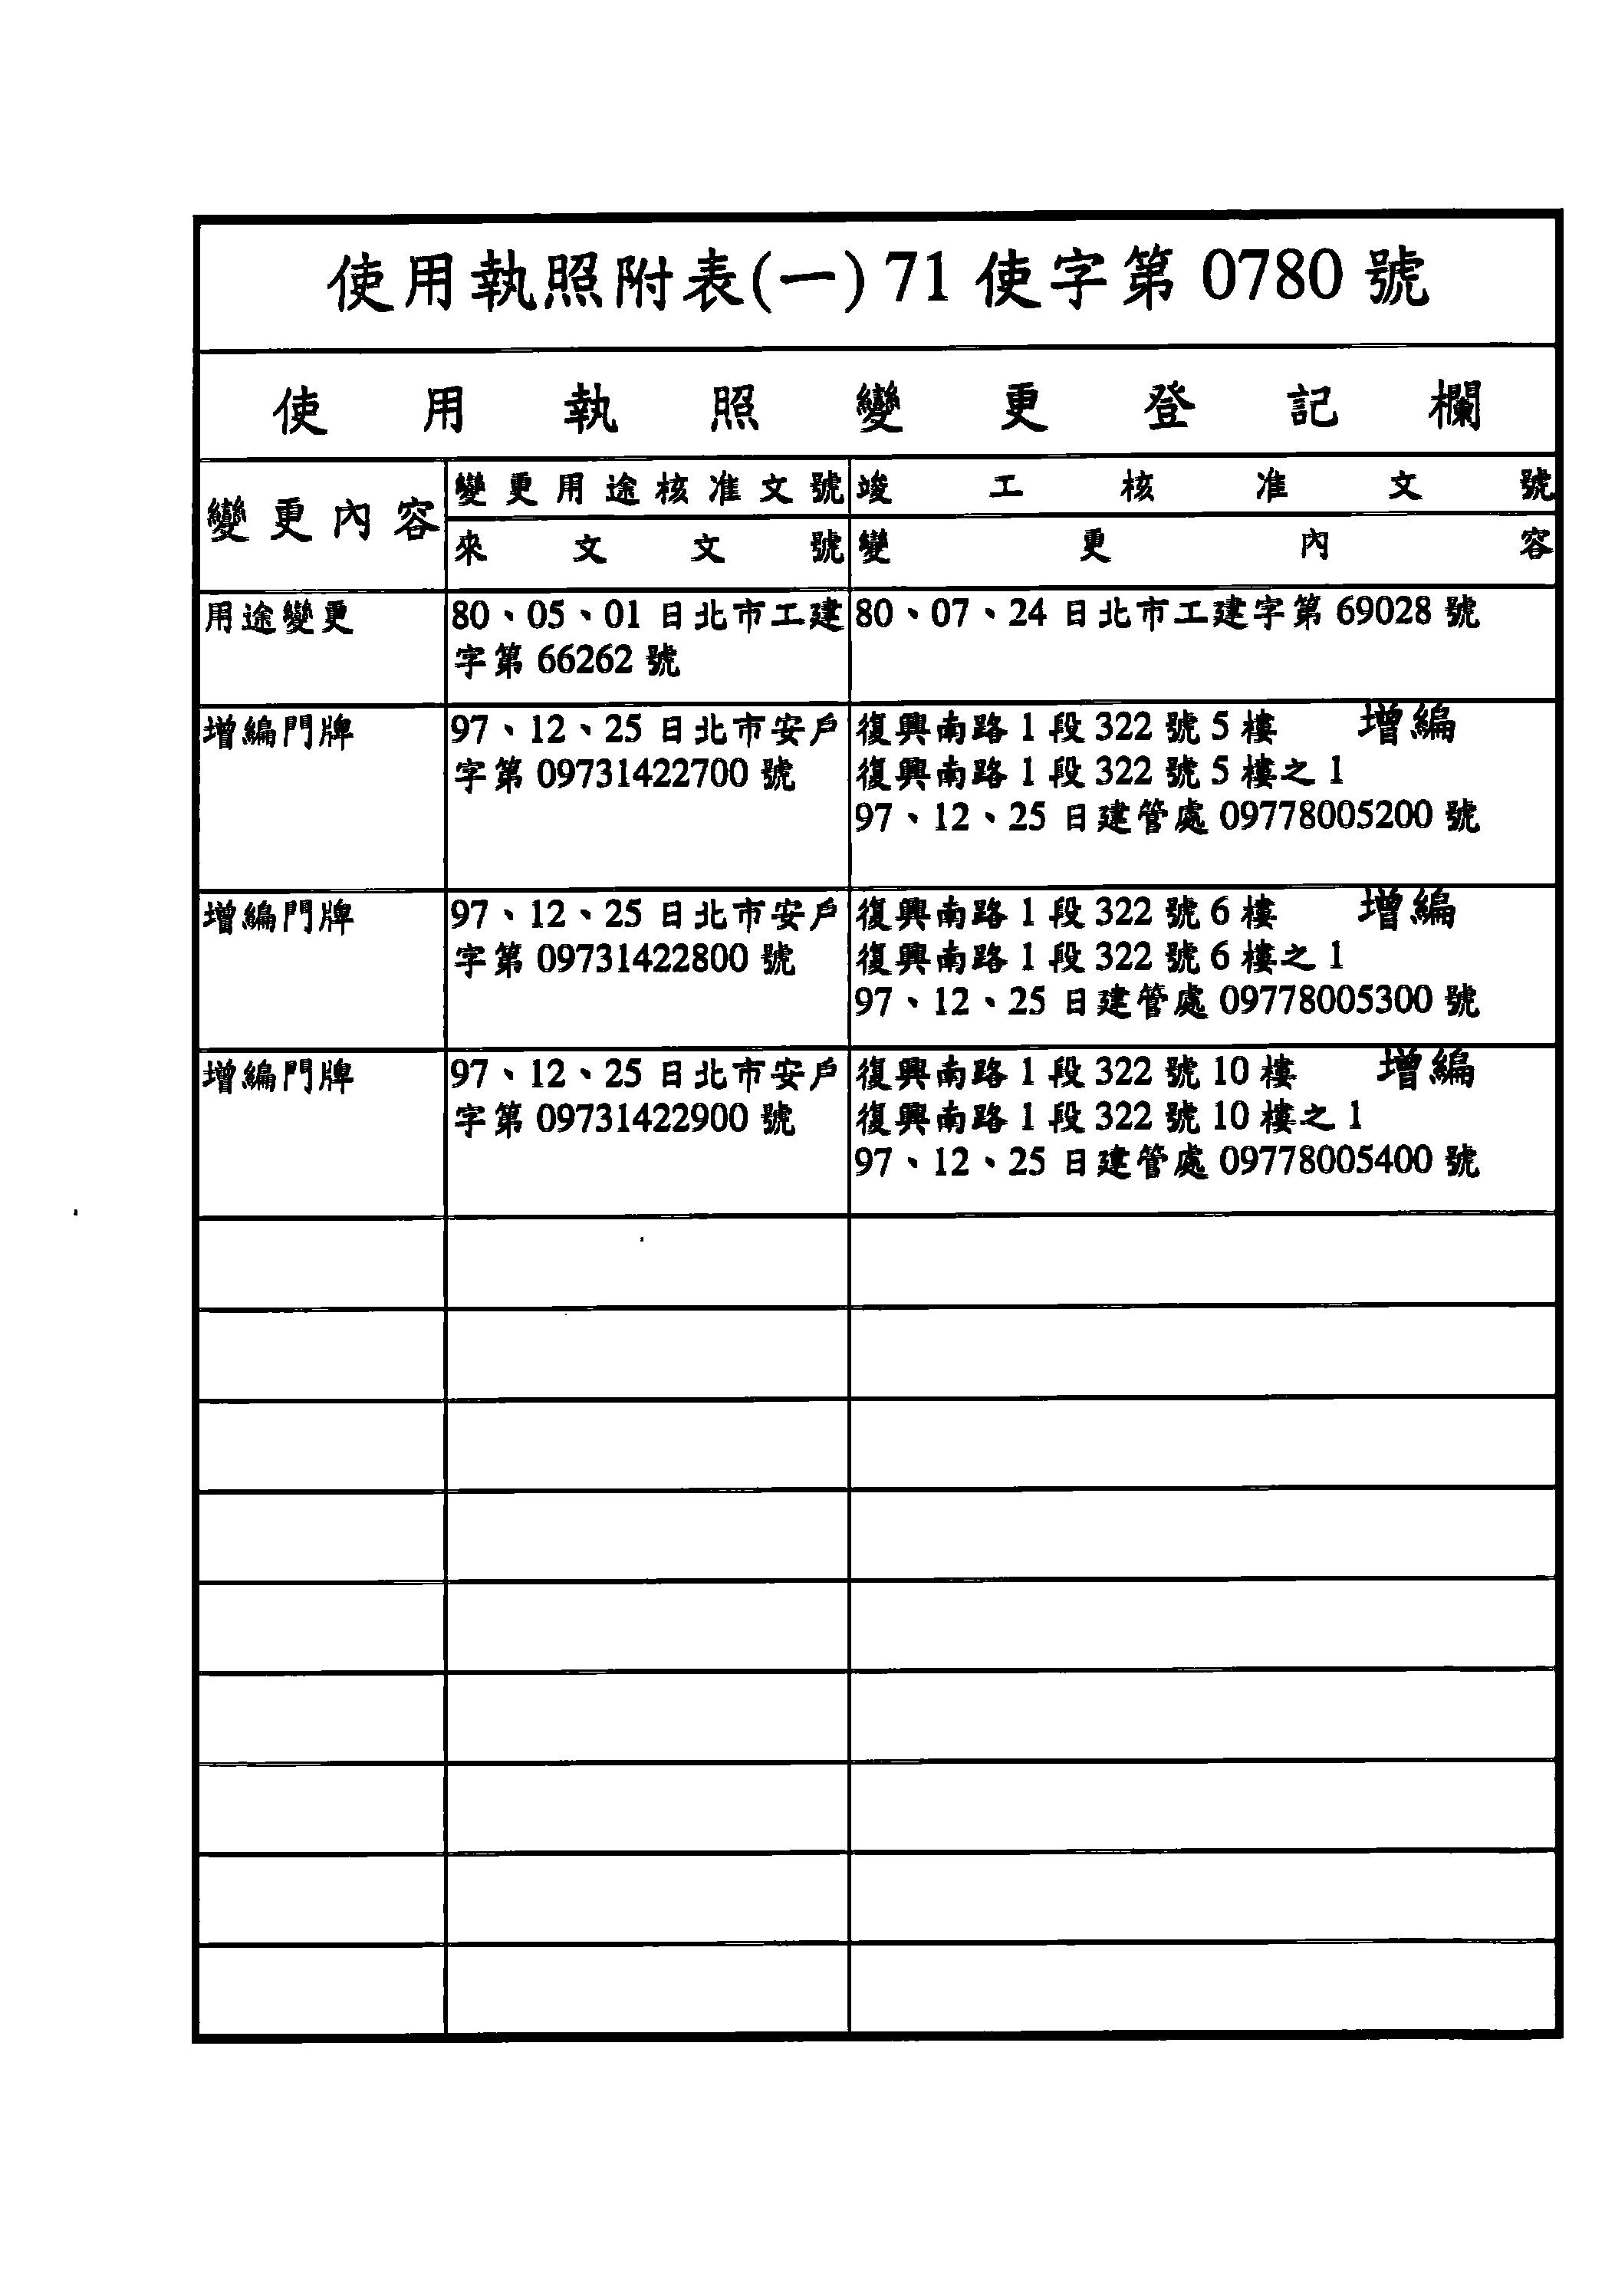 使用執照附表(一) 71 使字第 0780 號
使用執照變更登記欄
變更內容
變更用途核准文號
竣工核准文號
來文文號
變更內容
用途變更
80、05、01 日北市工建
字第 66262 號
80、07、24 日北市工建字第 69028 號
增編門牌
97、12、25 日北市安戶
字第 09731422700 號
復興南路 1 段 322 號 5 樓 增編
復興南路 1 段 322 號 5 樓之 1
97、12、25 日建管處 09778005200 號
增編門牌
97、12、25 日北市安戶
字第 09731422800 號
復興南路 1 段 322 號 6 樓 增編
復興南路 1 段 322 號 6 樓之 1
97、12、25 日建管處 09778005300 號
增編門牌
97、12、25 日北市安戶
字第 09731422900 號
復興南路 1 段 322 號 10 樓 增編
復興南路 1 段 322 號 10 樓之 1
97、12、25 日建管處 09778005400 號